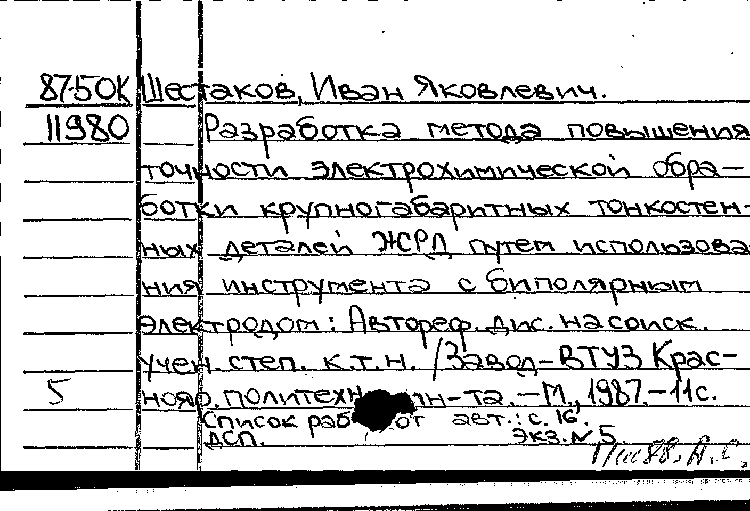 87-50К Шестаков, Иван Яковлевич.
11980 Разработка метода повышения
точности электрохимической обра-
ботки крупногабаритных тонкостен-
ных деталей ЖРД путем использова
ния инструмента с биполярным
электродом: Автореф. дис. на соиск.
учен. степ. к.т.н. /Завод-ВТУЗ Крас-
5 нояр. политехн. ин-та. -М., 1987.-11с.
Список раб от авт.: с. 16.
ДСП. Экз. №5